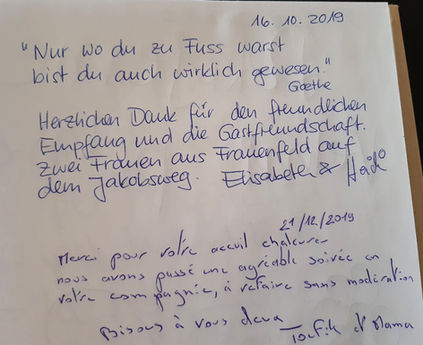 16.10.2019
"Nur wo du zu Fuss warst
bist du auch wirklich gewesen."
Goethe
Herzlichen Dank für den freundlichen
Empfang und die Gastfreundschaft.
Zwei Frauen aus Frauenfeld auf
dem Jakobsweg. Elisabeth &
21/12/2019
Merci pour votre accueil chaleureux
nous avons passé une agréable soirée en
votre compagnie, à refaire sans modération
Bisous à vous deux
Toufik et Mama